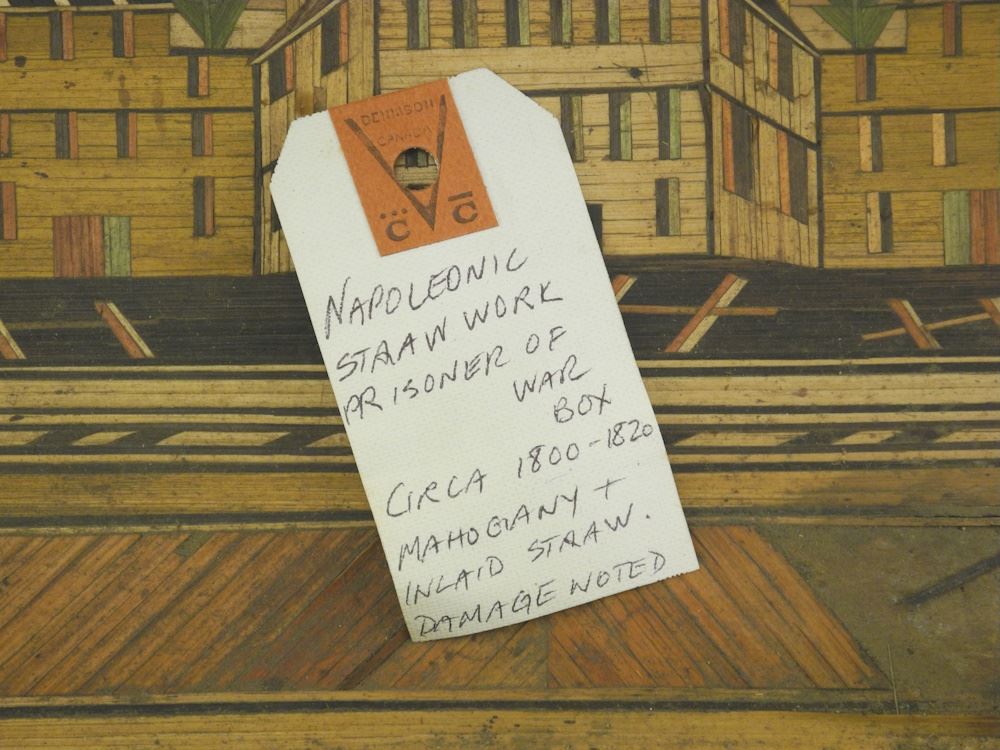 DENNISON
CANADA
C C
NAPOLEONIC
STRAW WORK
PRISONER OF
WAR
BOX
CIRCA 1800-1820
MAHOGANY +
INLAID STRAW.
DAMAGE NOTED